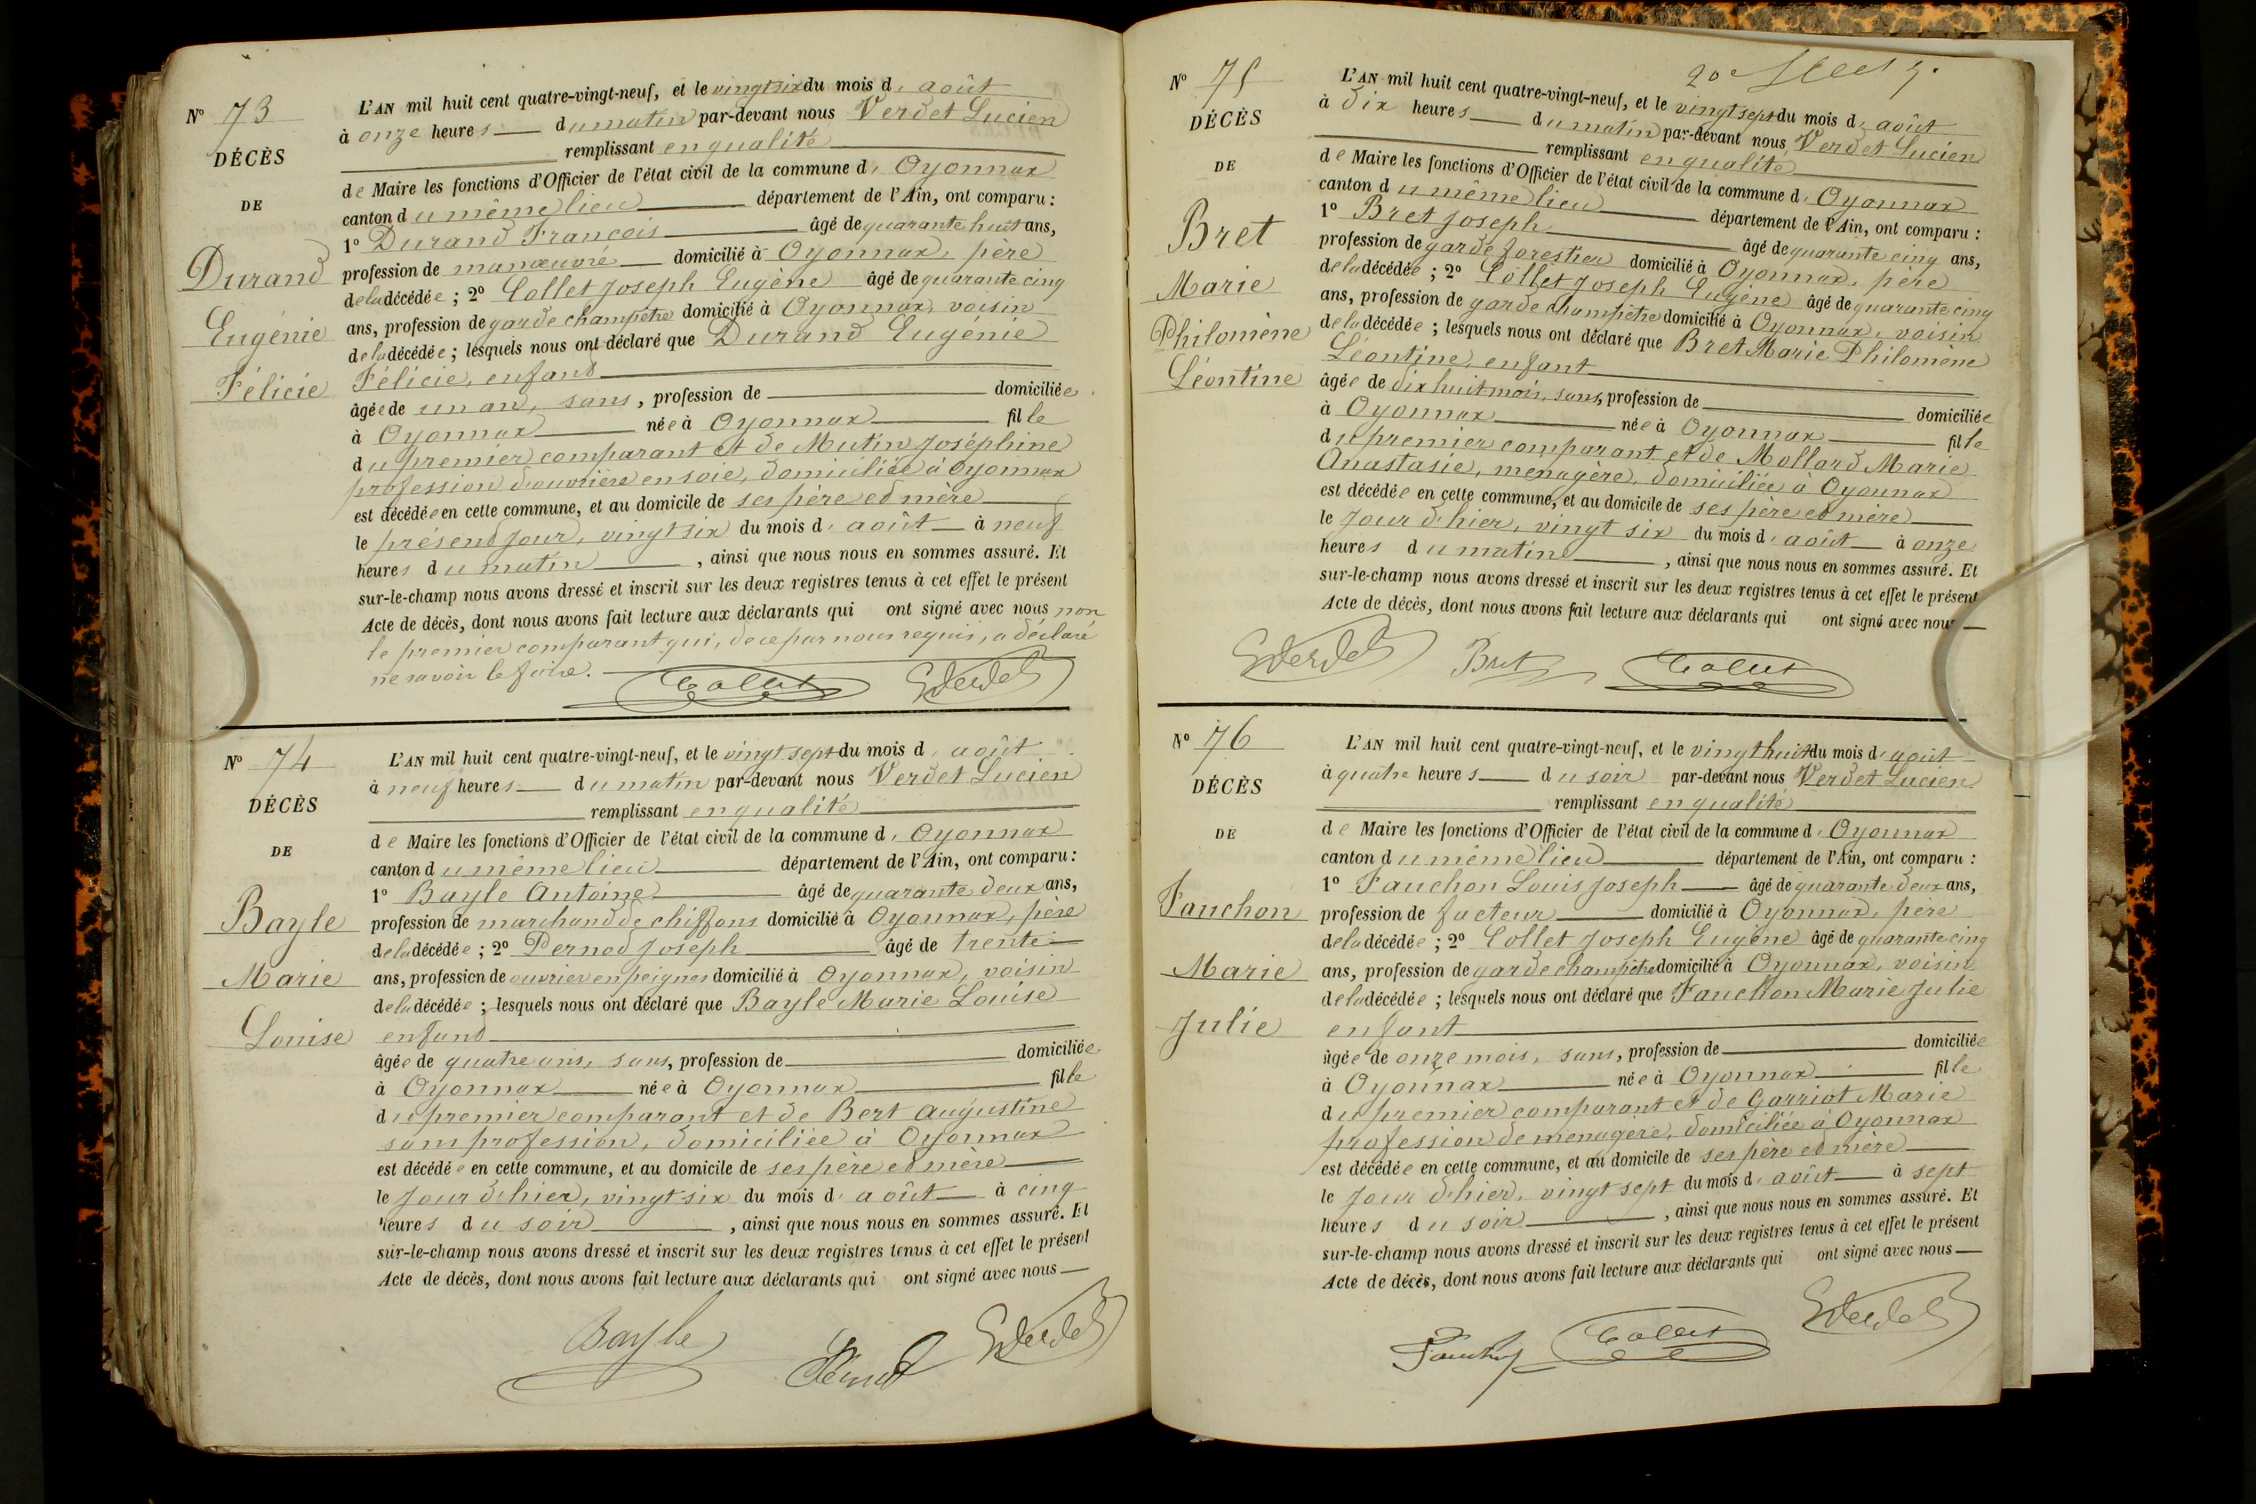 N° 73
DÉCÈS
DE
Durand
Eugénie
Félicie
L'AN mil huit cent quatre-vingt-neuf, et le vingt six du mois d'août
à onze heures du matin par-devant nous Verdet Lucien
remplissant en qualité
de Maire les fonctions d'Officier de l'état civil de la commune d'Oyonnax
canton du même lieu département de l'Ain, ont comparu :
1° Durand François âgé de quarante huit ans,
profession de manœuvre domicilié à Oyonnax, père
de la décédée ; 2° Collet Joseph Eugène âgé de quarante cinq
ans, profession de garde champêtre domicilié à Oyonnax, voisin
de la décédée ; lesquels nous ont déclaré que Durand Eugénie
Félicie, enfant
âgée de un an, sans, profession de domiciliée
à Oyonnax née à Oyonnax fille
du premier comparant et de Mutin Joséphine
profession d'ouvrière en soie, domiciliée à Oyonnax
est décédée en cette commune, et au domicile de ses père et mère
le présent jour, vingt six du mois d'août à neuf
heures du matin, ainsi que nous nous en sommes assuré. Et
sur-le-champ nous avons dressé et inscrit sur les deux registres tenus à cet effet le présent
Acte de décès, dont nous avons fait lecture aux déclarants qui ont signé avec nous non
le premier comparant qui, de ce par nous requis, a déclaré
ne savoir le faire.
Collet Verdet
N° 74
DÉCÈS
DE
Bayle
Marie
Louise
L'AN mil huit cent quatre-vingt-neuf, et le vingt sept du mois d'août
à neuf heures du matin par-devant nous Verdet Lucien
remplissant en qualité
de Maire les fonctions d'Officier de l'état civil de la commune d'Oyonnax
canton du même lieu département de l'Ain, ont comparu :
1° Bayle Antoine âgé de quarante deux ans,
profession de marchand de chiffons domicilié à Oyonnax, père
de la décédée ; 2° Pernod Joseph âgé de trente
ans, profession de ouvrier en peignes domicilié à Oyonnax, voisin
de la décédée ; lesquels nous ont déclaré que Bayle Marie Louise
enfant
âgée de quatre ans, sans, profession de domiciliée
à Oyonnax née à Oyonnax fille
du premier comparant et de Bert Augustine
sans profession, domiciliée à Oyonnax
est décédée en cette commune, et au domicile de ses père et mère
le jour d'hier, vingt six du mois d'août à cinq
heures du soir, ainsi que nous nous en sommes assuré. Et
sur-le-champ nous avons dressé et inscrit sur les deux registres tenus à cet effet le présent
Acte de décès, dont nous avons fait lecture aux déclarants qui ont signé avec nous
Bayle Verdet
N° 75
DÉCÈS
DE
Bret
Marie
Philomène
Léontine
L'AN mil huit cent quatre-vingt-neuf, et le vingt sept du mois d'août
à dix heures du matin par-devant nous Verdet Lucien
remplissant en qualité
de Maire les fonctions d'Officier de l'état civil de la commune d'Oyonnax
canton du même lieu département de l'Ain, ont comparu :
1° Bret Joseph âgé de quarante cinq ans,
profession de garde forestier domicilié à Oyonnax, père
de la décédée ; 2° Collet Joseph Eugène âgé de quarante cinq
ans, profession de garde champêtre domicilié à Oyonnax, voisin
de la décédée ; lesquels nous ont déclaré que Bret Marie Philomène
Léontine, enfant
âgée de dix huit mois, sans, profession de domiciliée
à Oyonnax née à Oyonnax fille
du premier comparant et de Mollard Marie
Anastasie, menagère, domiciliée à Oyonnax
est décédée en cette commune, et au domicile de ses père et mère
le jour d'hier, vingt six du mois d'août à onze
heures du matin, ainsi que nous nous en sommes assuré. Et
sur-le-champ nous avons dressé et inscrit sur les deux registres tenus à cet effet le présent
Acte de décès, dont nous avons fait lecture aux déclarants qui ont signé avec nous
Verdet Bret Collet
N° 76
DÉCÈS
DE
Fauchon
Marie
Julie
L'AN mil huit cent quatre-vingt-neuf, et le vingt huit du mois d'août
à quatre heures du soir par-devant nous Verdet Lucien
remplissant en qualité
de Maire les fonctions d'Officier de l'état civil de la commune d'Oyonnax
canton du même lieu département de l'Ain, ont comparu :
1° Fauchon Louis Joseph âgé de quarante deux ans,
profession de facteur domicilié à Oyonnax, père
de la décédée ; 2° Collet Joseph Eugène âgé de quarante cinq
ans, profession de garde champêtre domicilié à Oyonnax, voisin
de la décédée ; lesquels nous ont déclaré que Fauchon Marie Julie
enfant
âgée de onze mois, sans, profession de domiciliée
à Oyonnax née à Oyonnax fille
du premier comparant et de Garriot Marie
profession de menagère, domiciliée à Oyonnax
est décédée en cette commune, et au domicile de ses père et mère
le jour d'hier, vingt sept du mois d'août à sept
heures du soir, ainsi que nous nous en sommes assuré. Et
sur-le-champ nous avons dressé et inscrit sur les deux registres tenus à cet effet le présent
Acte de décès, dont nous avons fait lecture aux déclarants qui ont signé avec nous
Collet Verdet